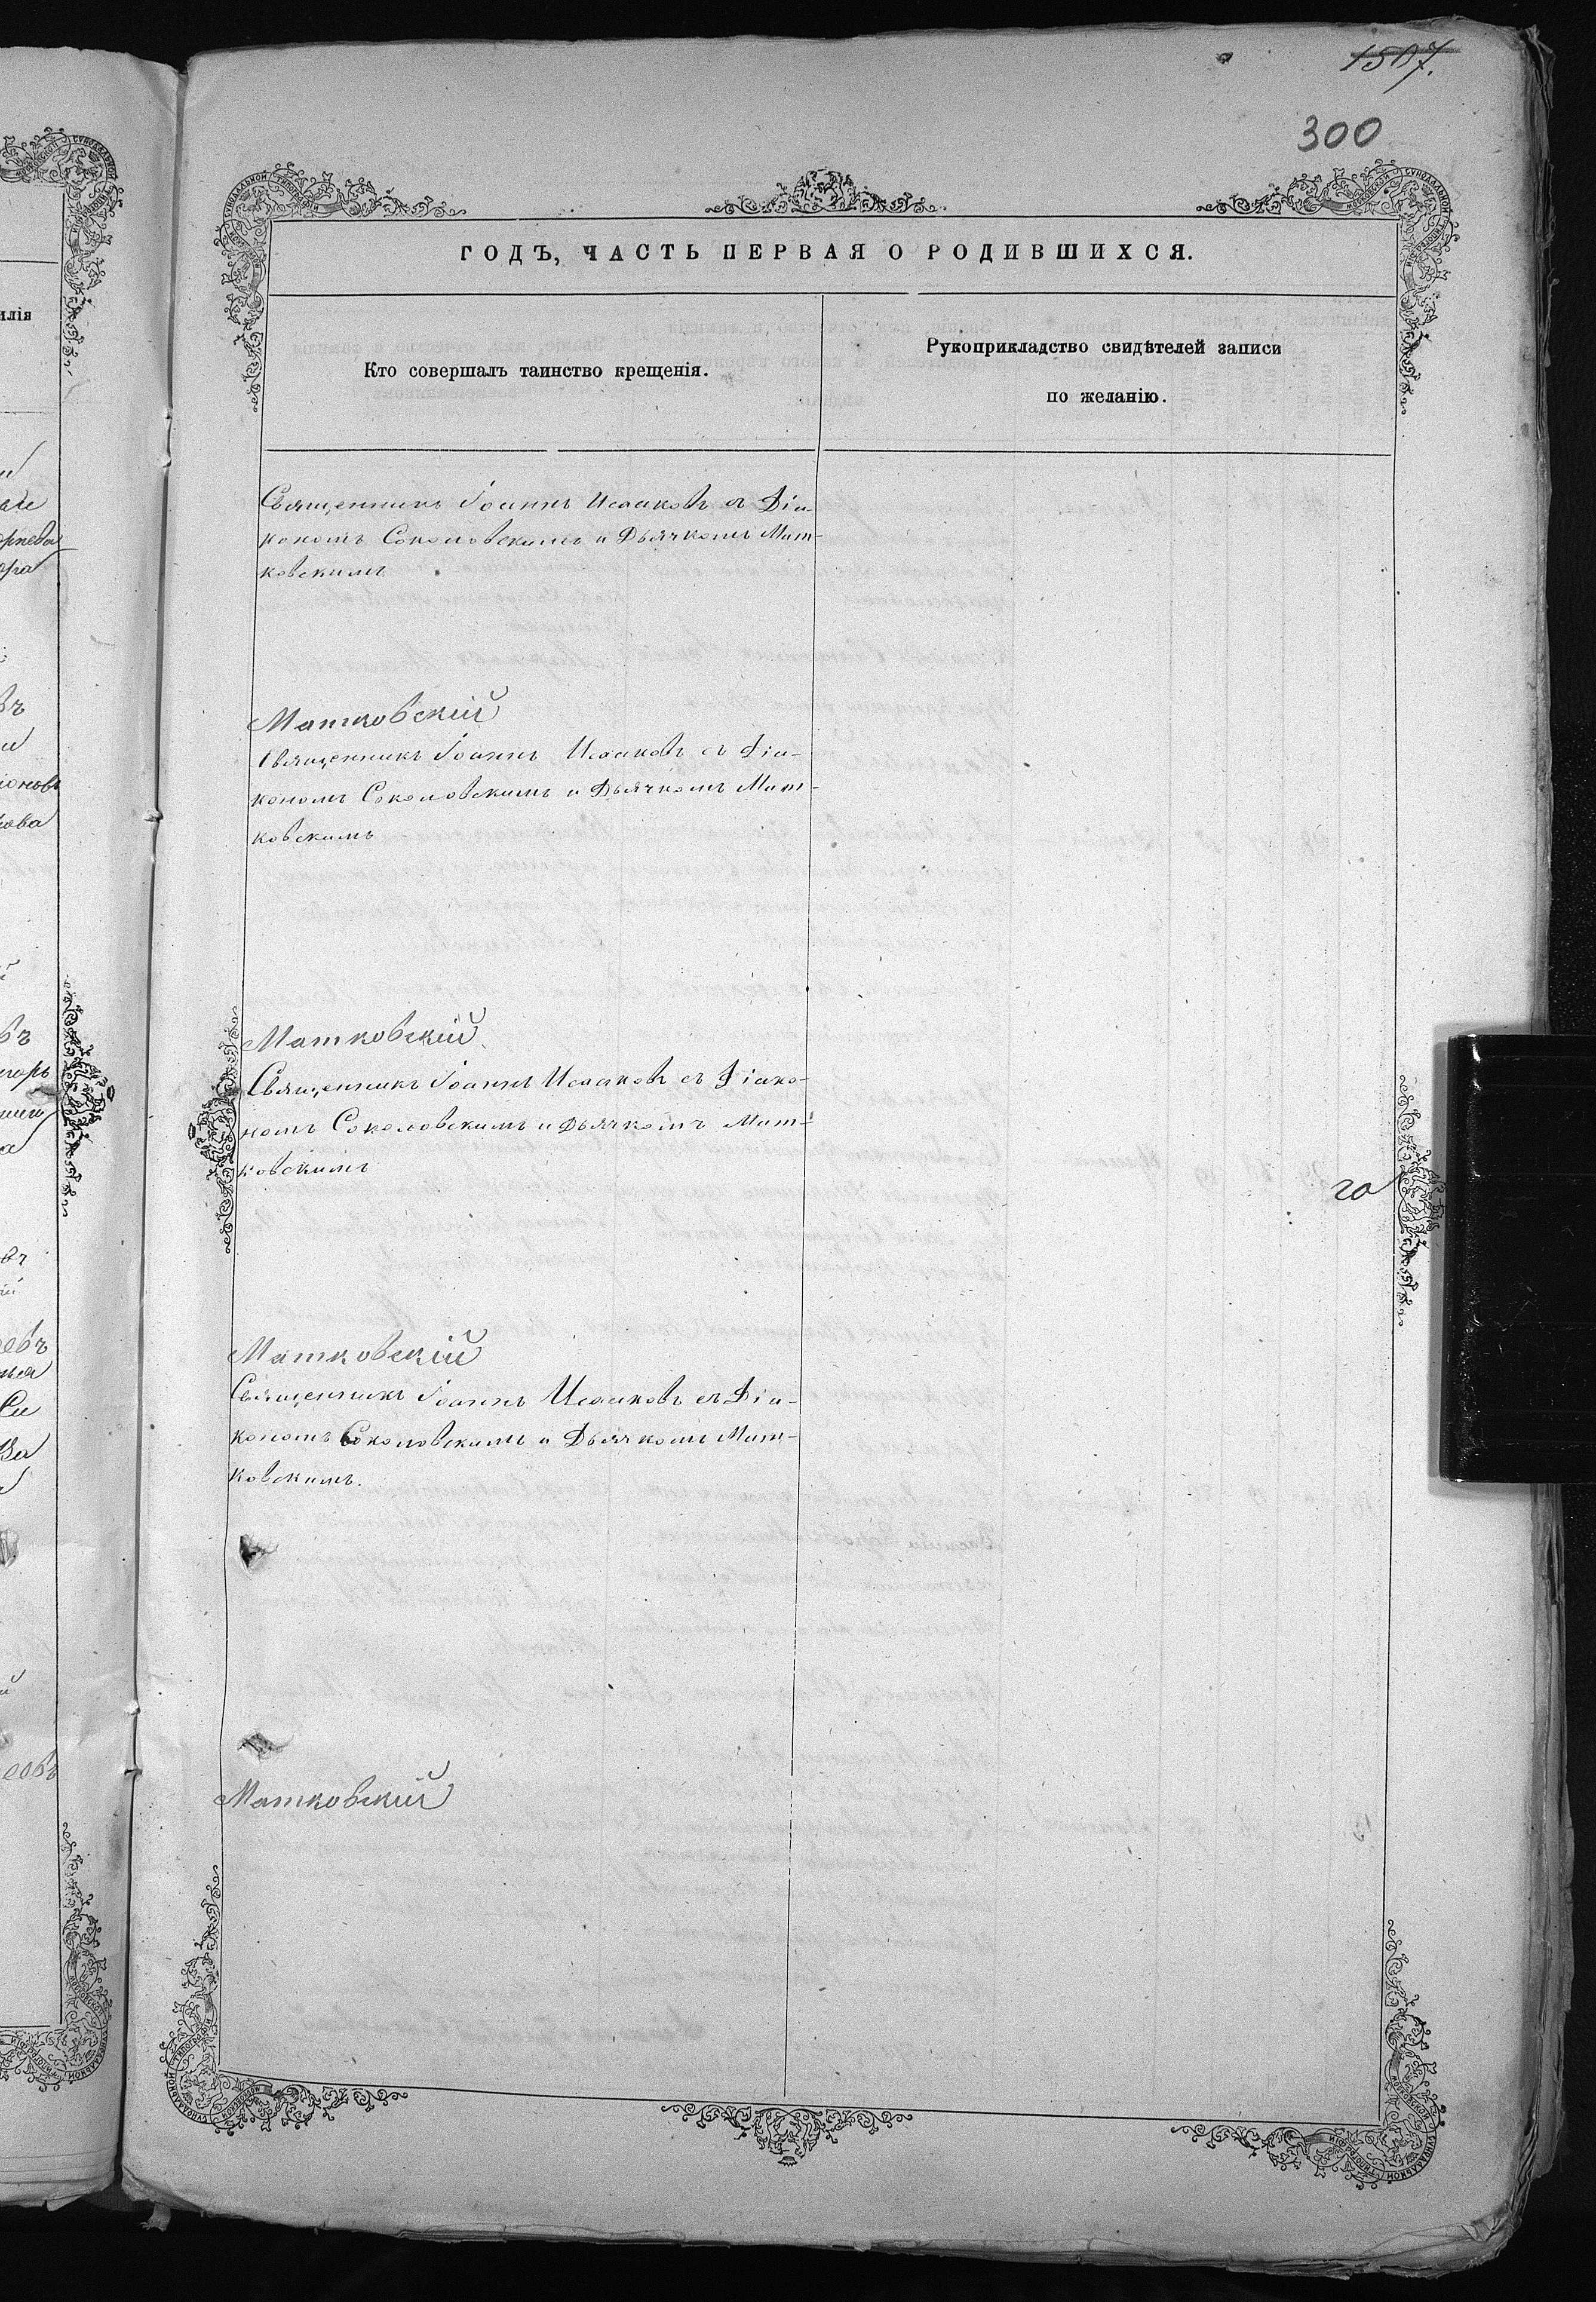 1507.
300
ГОДЪ, ЧАСТЬ ПЕРВАЯ О РОДИВШИХСЯ.
Кто совершалъ таинство крещенія.
Рукоприкладство свидѣтелей записи
по желанію.
Священникъ Іоаннъ Исааковъ съ Діа-
кономъ Соколовскимъ и Дьячкомъ Мат-
ковскимъ
Матковскій
Священникъ Іоаннъ Исааковъ съ Діа-
кономъ Соколовскимъ и Дьячкомъ Мат-
ковскимъ
Матковскій
Священникъ Іоаннъ Исааковъ съ Діако-
номъ Соколовскимъ и Дьячкомъ Мат-
ковскимъ
го
Матковскій
Священникъ Іоаннъ Исааковъ съ Діа-
кономъ Соколовскимъ и Дьячкомъ Мат-
ковскимъ.
Матковскій